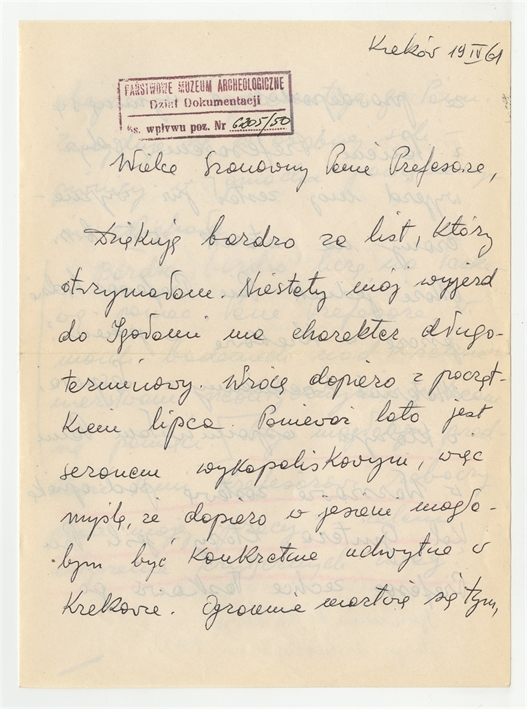 Kraków 19 IV 61
PAŃSTWOWE MUZEUM ARCHEOLOGICZNE
Dział Dokumentacji
Ks. wpływu poz. Nr 6205/50
Wielce Szanowny Panie Profesorze,
Dziękuję bardzo za list, który
otrzymałam. Niestety mój wyjazd
do Igołomi ma charakter długo-
terminowy. Wrócę dopiero z począt-
kiem lipca. Ponieważ lato jest
sezonem wykopaliskowym, więc
myślę, że dopiero w jesieni mogła-
bym być konkretnie uchwytna w
Krakowie. Ogromnie martwię się tym,